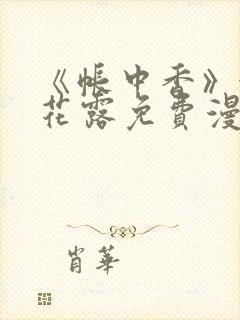 《帐中香》
花露免费漫
肖华